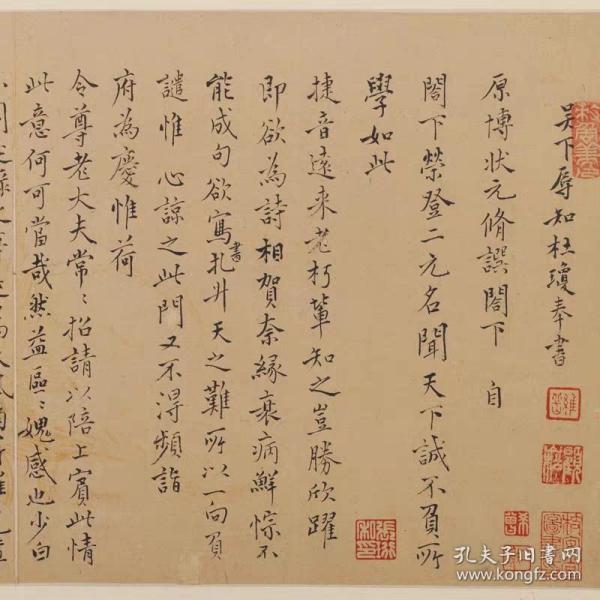 吳下辱知杜瓊奉書
原博狀元脩譔閣下 自
閣下榮登二元名聞天下誠不負所
學如此
捷音遠來老朽輩知之豈勝欣躍
即欲為詩相賀奈緣衰病鮮悰不
能成句欲寫書扎升天之難所以一向負
譴惟 心諒之此門又不得頻詣
府為慶惟荷
令尊老大夫常〻招請以陪上賓此情
此意何可當哉然益區〻媿感也少白
孔夫子旧书网
www.kongfz.com